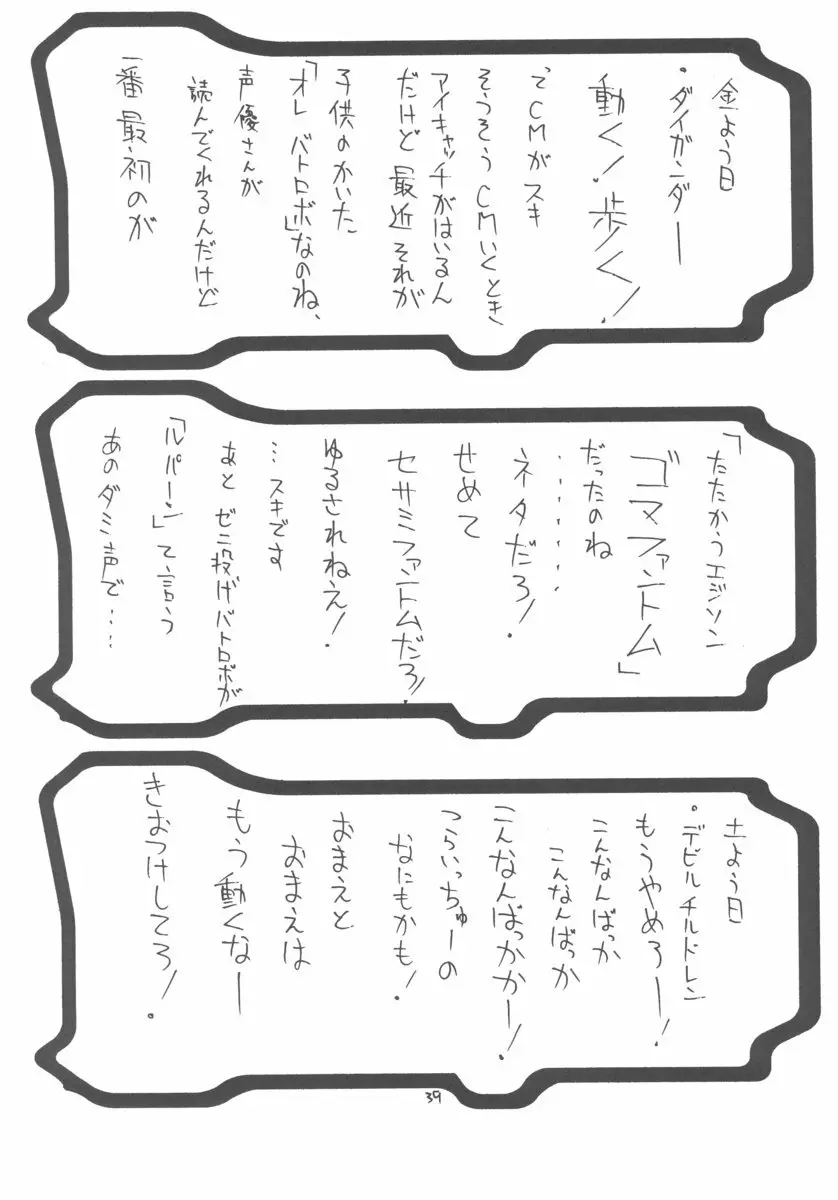 金よう日
・ダイガンダー
動く!歩く!
てCMがスキ
そうそうCMいくとき
アイキャッチがはいるん
だけど 最近それが
子供のかいた
「オレ バトロボ」なのね、
声優さんが
読んでくれるんだけど
一番最初のが
「たたかうエジソン
ゴマファントム」
だったのね
・・・・・・・
ネタだろ!
せめて
セサミファントムだろ!
ゆるされねえ!
…スキです
あと ゼニ投げバトロボが
「ルパーン」て言う
あのダミ声で‥‥
土よう日
・デビルチルドレン
もうやめろー!
こんなんばっか
こんなんばっか
こんなんばっかかー!
つらいっちゅーの
なにもかも!
おまえと
おまえは
もう動くなー
きおつけしてろ!
39